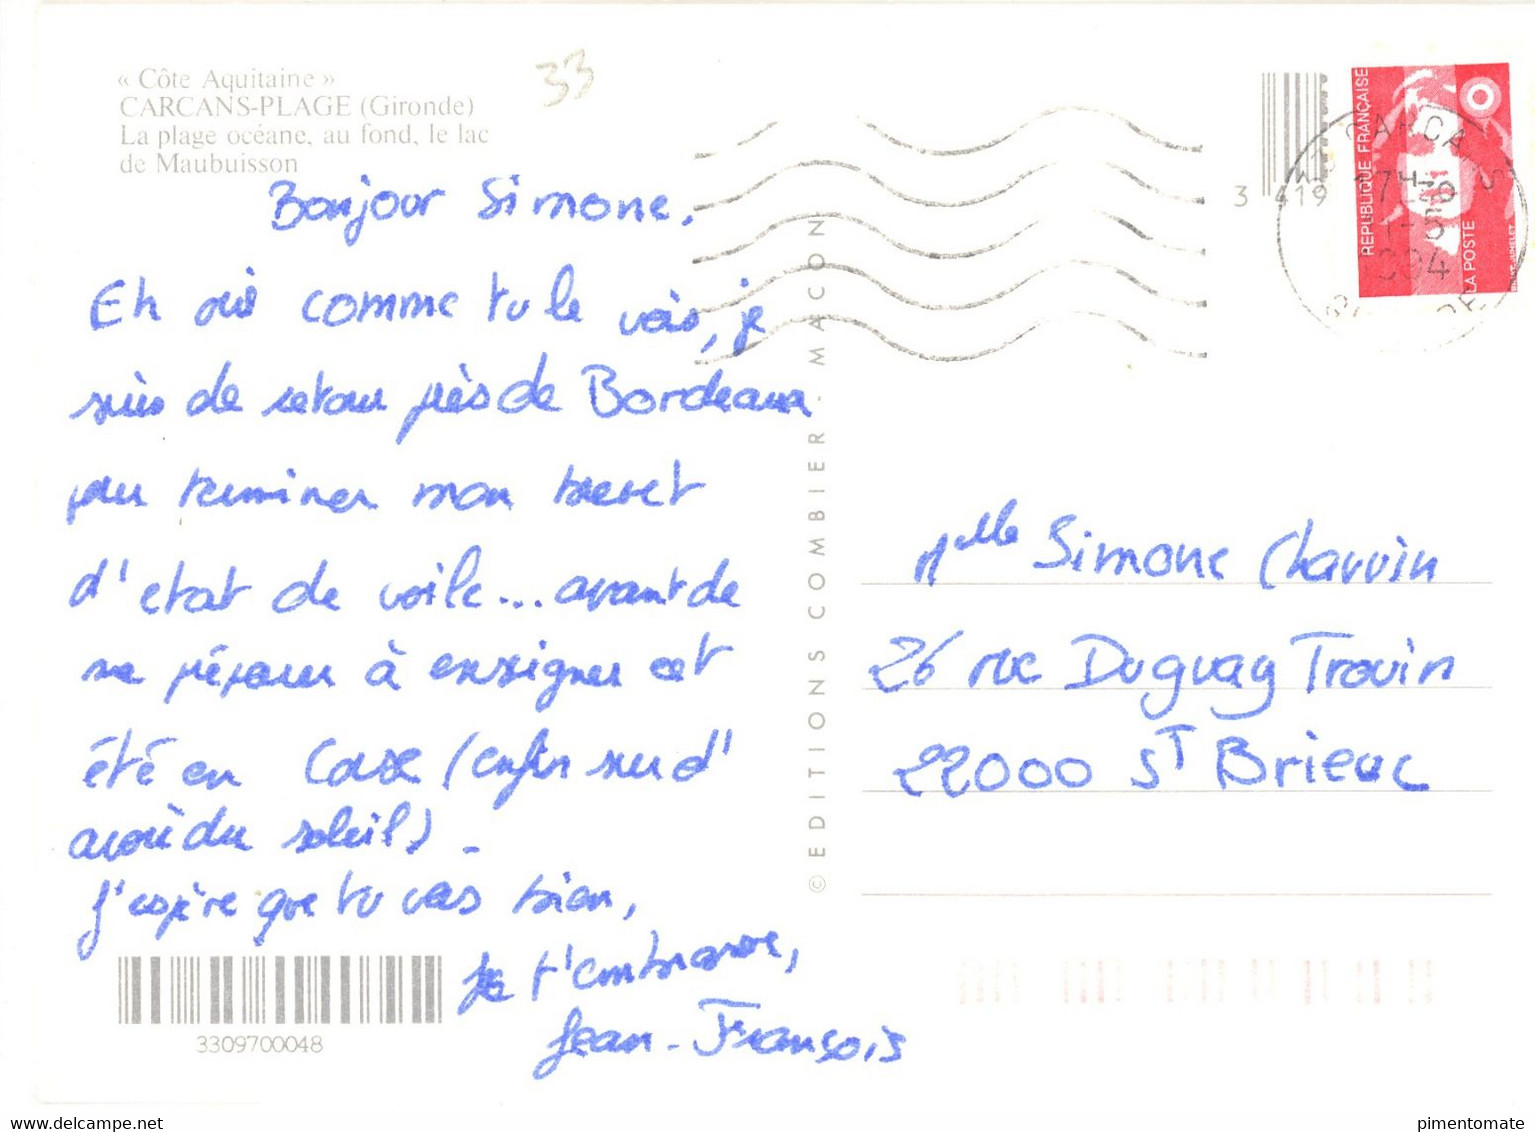 « Côte Aquitaine »
CARCANS-PLAGE (Gironde)
La plage océane, au fond, le lac
de Maubuisson
33
Bonjour Simone,
Eh oui comme tu le vois, je
suis de retour près de Bordeaux
pour terminer mon brevet
d'etat de voile... avant de
me préparer à enseigner cet
été en Corse (enfin sur d'
avoir du soleil).
J'espère que tu vas bien,
Je t'embrasse,
Jean-François
3309700048
© EDITIONS COMBIER - MACON
3 419
REPUBLIQUE FRANÇAISE
LA POSTE
CARCANS
Mlle Simone Charvin
26 rue Duguay Trouin
22000 ST Brieuc
www.delcampe.net
pimentomate